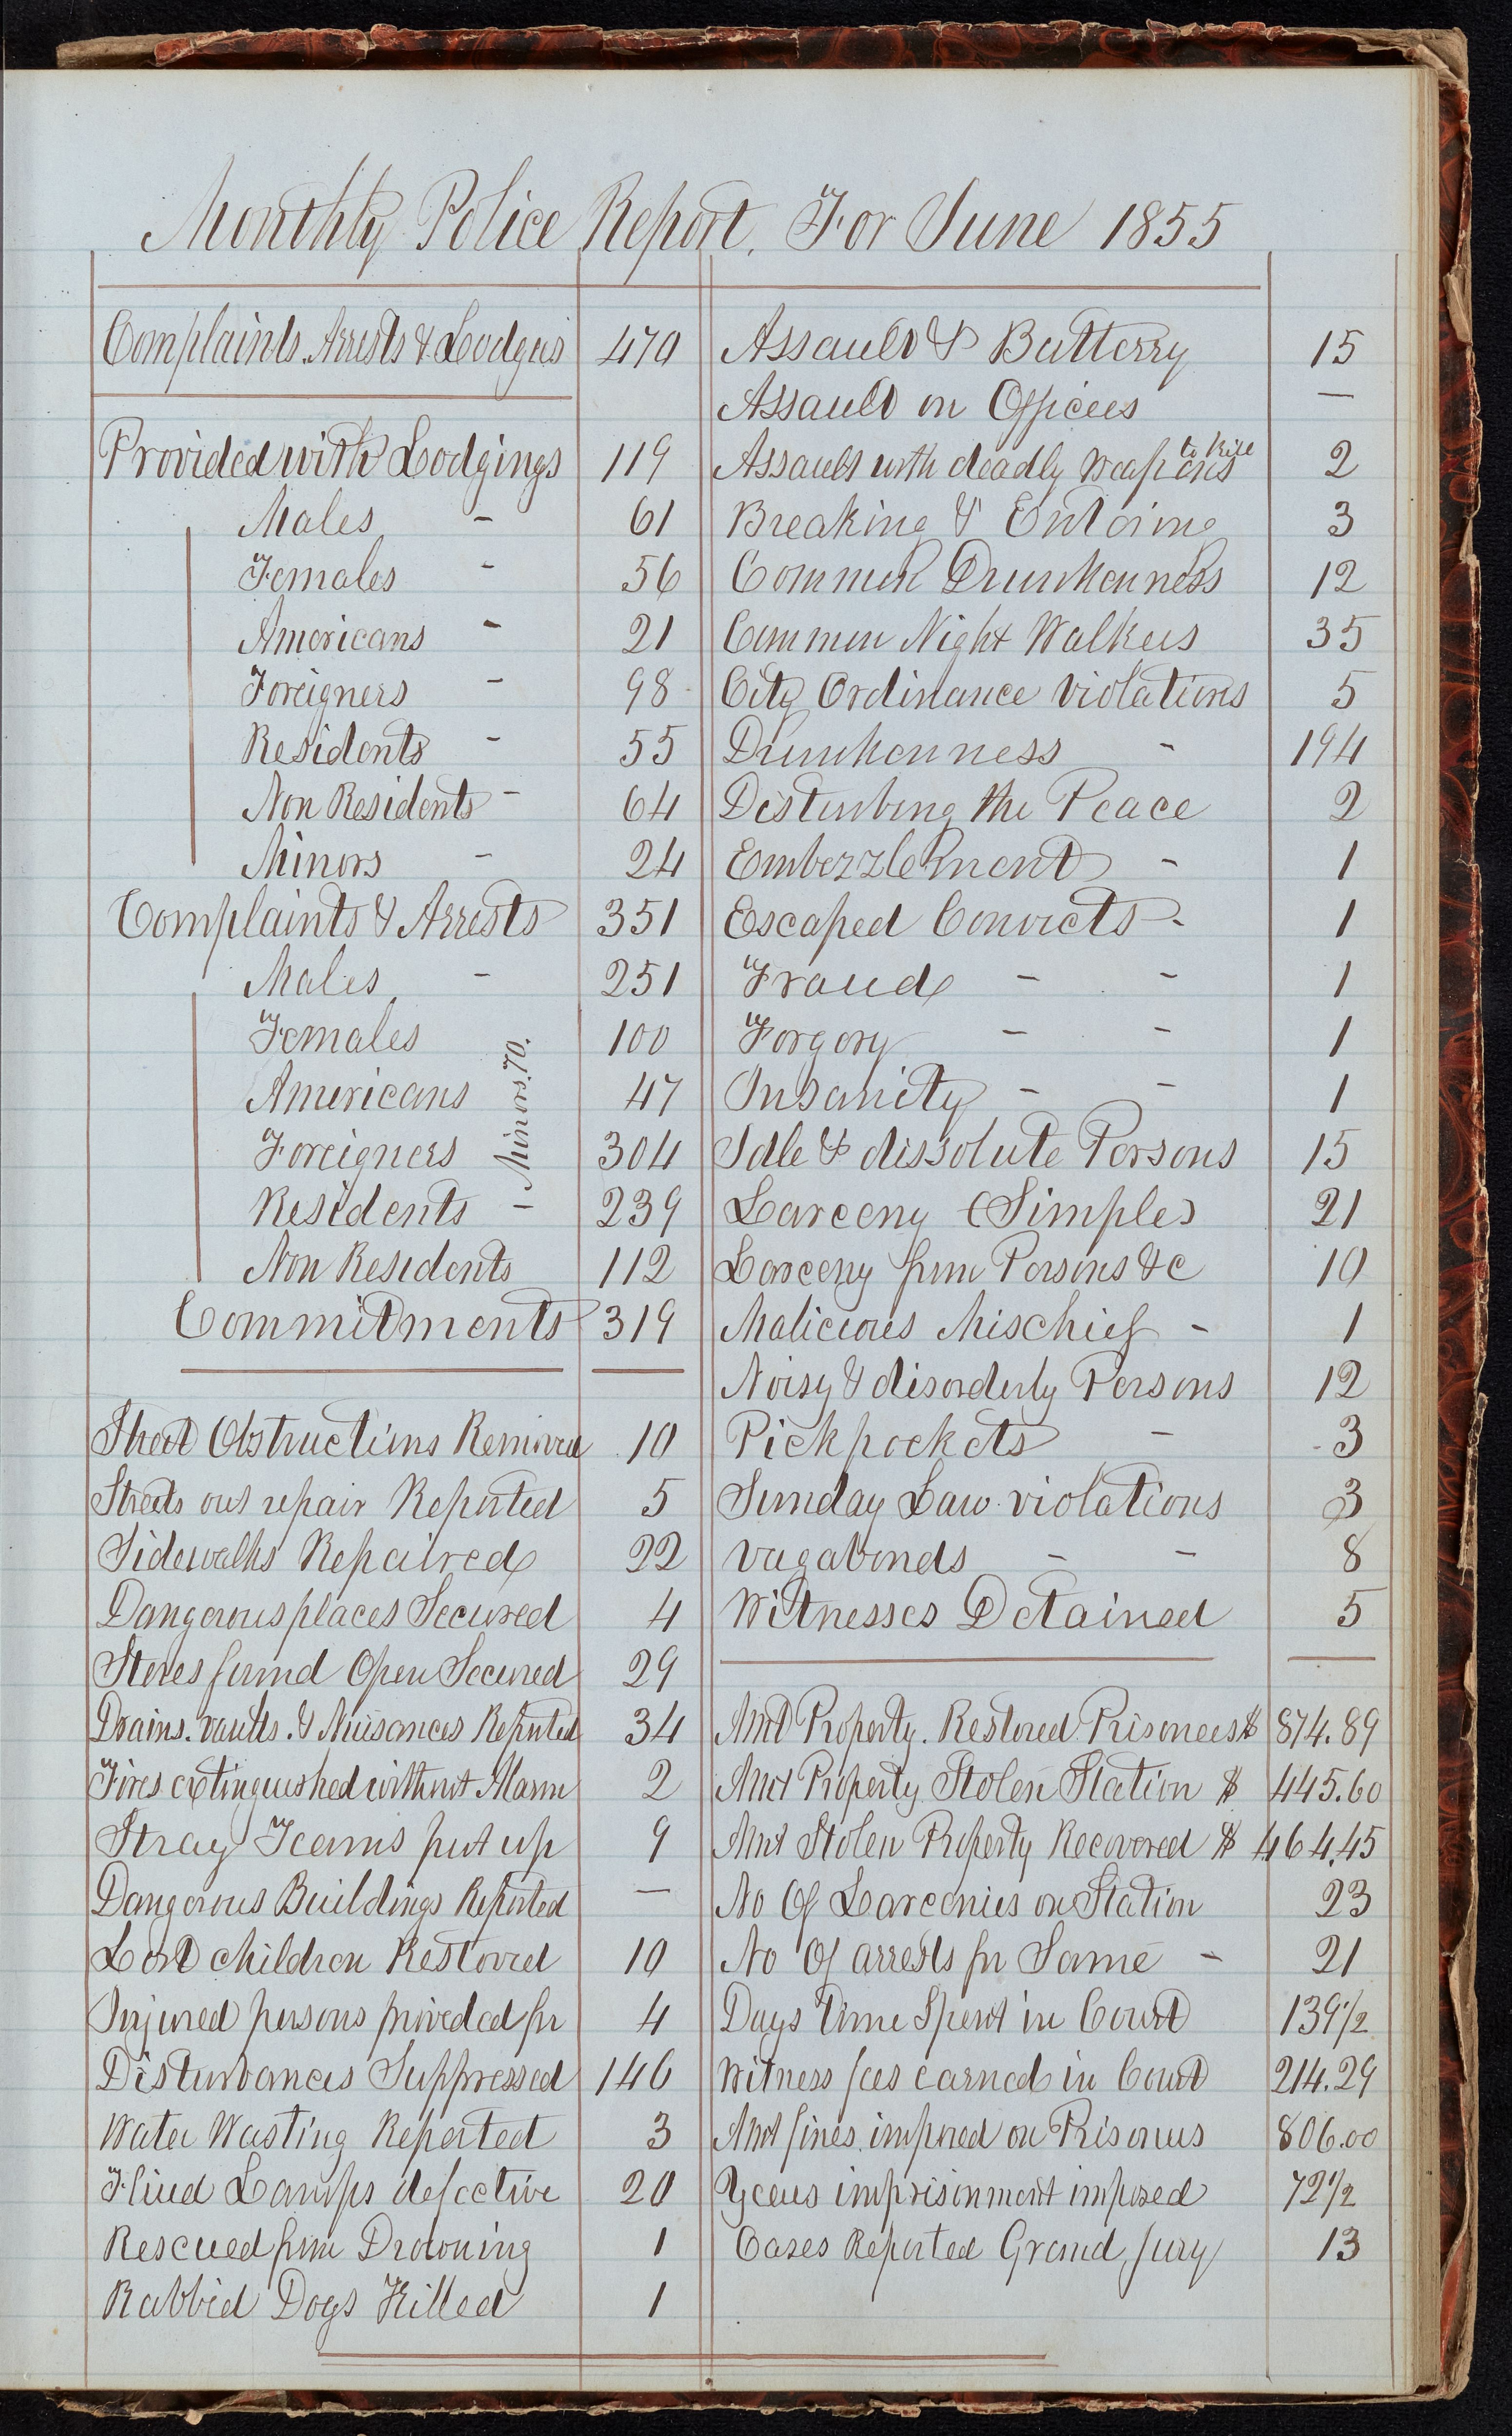 Monthly Police Report. For June 1855
Complaints Arrests & Lodgers 470
Provided with Lodgings 119
Males - 61
Females - 56
Americans - 21
Foreigners - 98
Residents - 55
Non Residents - 64
Minors - 24
Complaints & Arrests 351
Males - 251
Females 100
Americans 47
Foreigners 304
Residents - 239
Non Residents 112
Minors. 70.
Commitments 319
Street Obstructions Removed 10
Streets out repair Reported 5
Sidewalks Repaired 22
Dangerous places Secured 4
Stores found Open Secured 29
Drains. vaults. & Nuisances Reported 34
Fires extinguished without Alarm 2
Stray Teams put up 9
Dangerous Buildings Reported —
Lost children Restored 10
Injured persons provided for 4
Disturbances Suppressed 146
Water Wasting Reported 3
Fluid Lamps defective 20
Rescued from Drowning 1
Rabbid Dogs Killed 1
Assault & Batterry 15
Assault on Officers —
Assault with deadly weapons to kill 2
Breaking & Entering 3
Common Drunkenness 12
Common Night Walkers 35
City Ordinance violations 5
Drunkenness - 194
Disturbing the Peace 2
Embezzlement - 1
Escaped Convicts - 1
Fraud - - 1
Forgery - - 1
Insanity - - 1
Idle & dissolute Persons 15
Larceny (Simple) 21
Larceny from Persons &c 10
Malicious Mischief - 1
Noisy & disorderly Persons 12
Pickpockets - 3
Sunday Law violations 3
vagabonds - - 8
Witnesses Detained 5
Amt Property. Restored Prisoners $ 874.89
Amt Property Stolen Station $ 445.60
Amt Stolen Property Recovered $ 464.45
No Of Larcenies on Station 23
No Of arrests for Same - 21
Days time Spent in Court 139 1/2
Witness fees earned in Court 214.29
Amt fines imposed on Prisoners 806.00
Years imprisonment imposed 72 1/2
Cases Reported Grand Jury 13